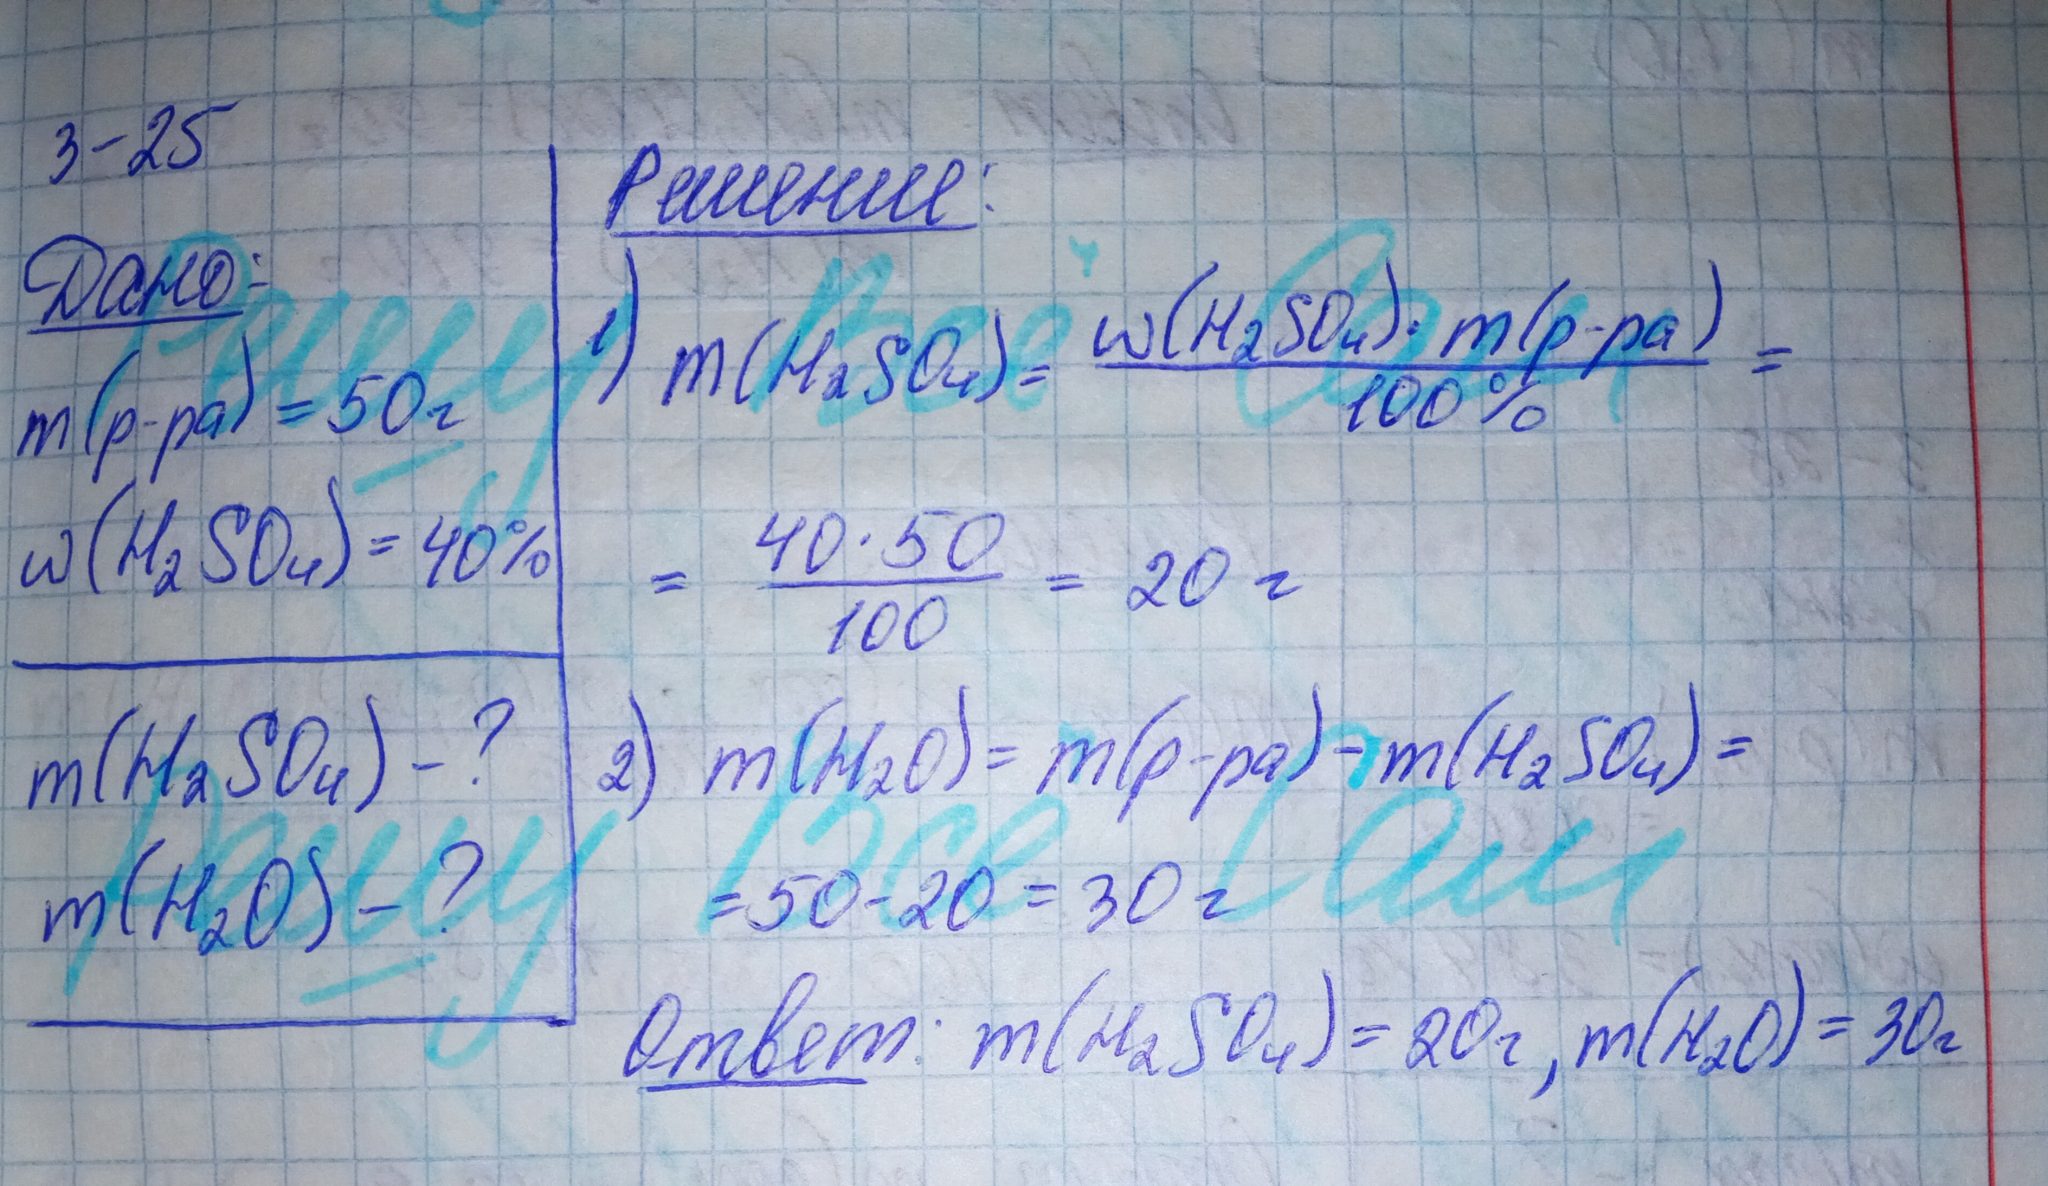 3-25
Дано:
m(р-ра) = 50г
w(H₂SO₄) = 40%
m(H₂SO₄) - ?
m(H₂O) - ?
Решение:
1) m(H₂SO₄) = w(H₂SO₄) · m(р-ра) / 100% =
= 40 · 50 / 100 = 20 г
2) m(H₂O) = m(р-ра) - m(H₂SO₄) =
= 50 - 20 = 30 г
Ответ: m(H₂SO₄) = 20г, m(H₂O) = 30г
Решу Всё Сам
Решу Всё Сам